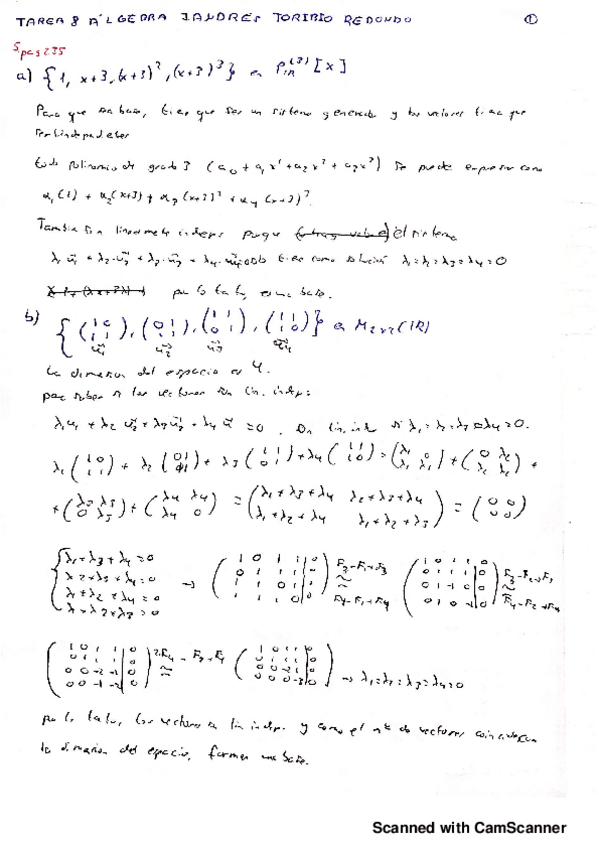 TAREA 8 ÁLGEBRA I ANDRÉS TORIBIO REDONDO ①
5 pag 235
a) {1, x+3, (x+3)², (x+3)³} en P_IR^(3) [x]
Para que sea base, tiene que ser un sistema generador y los vectores tiene que
ser independientes
todo polinomio de grado 3 (a₀ + a₁x¹ + a₂x² + a₃x³) se puede expresar como
α₁(1) + α₂(x+3) + α₃(x+3)² + α₄(x+3)³.
También son linealmente indeps porque el sistema
λ₁u₁ + λ₂u₂ + λ₃u₃ + λ₄u₄ solo tiene como solución λ₁=λ₂=λ₃=λ₄=0
por lo tanto, es una base.
b) {(1 0 / 1 1), (0 1 / 1 1), (1 1 / 0 1), (1 1 / 1 0)} en M₂ₓ₂(IR)
u₁ u₂ u₃ u₄
La dimension del espacio es 4.
para saber si los vectores son lin. indep:
λ₁u₁ + λ₂u₂ + λ₃u₃ + λ₄u = 0. Son lin. ind si λ₁=λ₂=λ₃=λ₄=0.
λ₁(1 0 / 1 1) + λ₂(0 1 / 1 1) + λ₃(1 1 / 0 1) + λ₄(1 1 / 1 0) = (λ₁ 0 / λ₁ λ₁) + (0 λ₂ / λ₂ λ₂) +
+ (λ₃ λ₃ / 0 λ₃) + (λ₄ λ₄ / λ₄ 0) = (λ₁+λ₃+λ₄ λ₂+λ₃+λ₄ / λ₁+λ₂+λ₄ λ₁+λ₂+λ₃) = (0 0 / 0 0)
λ₁+λ₃+λ₄=0
λ₂+λ₃+λ₄=0
λ₁+λ₂+λ₄=0
λ₁+λ₂+λ₃=0
→ (1 0 1 1 | 0 / 0 1 1 1 | 0 / 1 1 0 1 | 0 / 1 1 1 0 | 0) F₃-F₁→F₃ ≈ F₄-F₁→F₄ (1 0 1 1 | 0 / 0 1 1 1 | 0 / 0 1 -1 0 | 0 / 0 1 0 -1 | 0) F₃-F₂→F₃ ≈ F₄-F₂→F₄
(1 0 1 1 | 0 / 0 1 1 1 | 0 / 0 0 -2 -1 | 0 / 0 0 -1 -2 | 0) 2·F₄-F₃→F₄ ≈ (1 0 1 1 | 0 / 0 1 1 1 | 0 / 0 0 -2 -1 | 0 / 0 0 0 -3 | 0) → λ₁=λ₂=λ₃=λ₄=0
por lo tanto, los vectores son lin indep. y como el nº de vectores coincide con
la dimension del espacio, forman una base.
Scanned with CamScanner